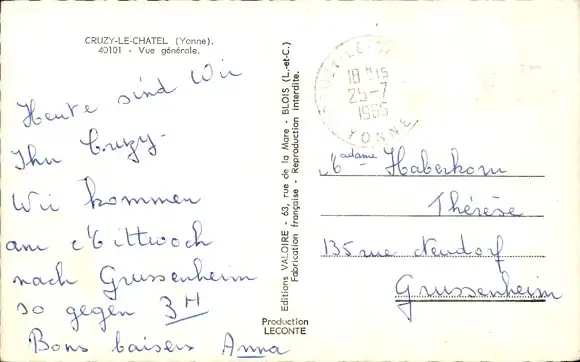 CRUZY-LE-CHATEL (Yonne).
40101 - Vue générale.
Heute sind Wir
Ihn Cruzy-
Wir kommen
am Mittwoch
nach Grussenheim
so gegen 3H
Bons baisers Anna
Editions VALOIRE - 63, rue de la Mare - BLOIS (L.-et-C.)
Fabrication française - Reproduction interdite.
Production
LECONTE
18 H 15
25-7
1965
YONNE
Madame Haberkorn
Thérèse
135 rue Neudorf
Grussenheim